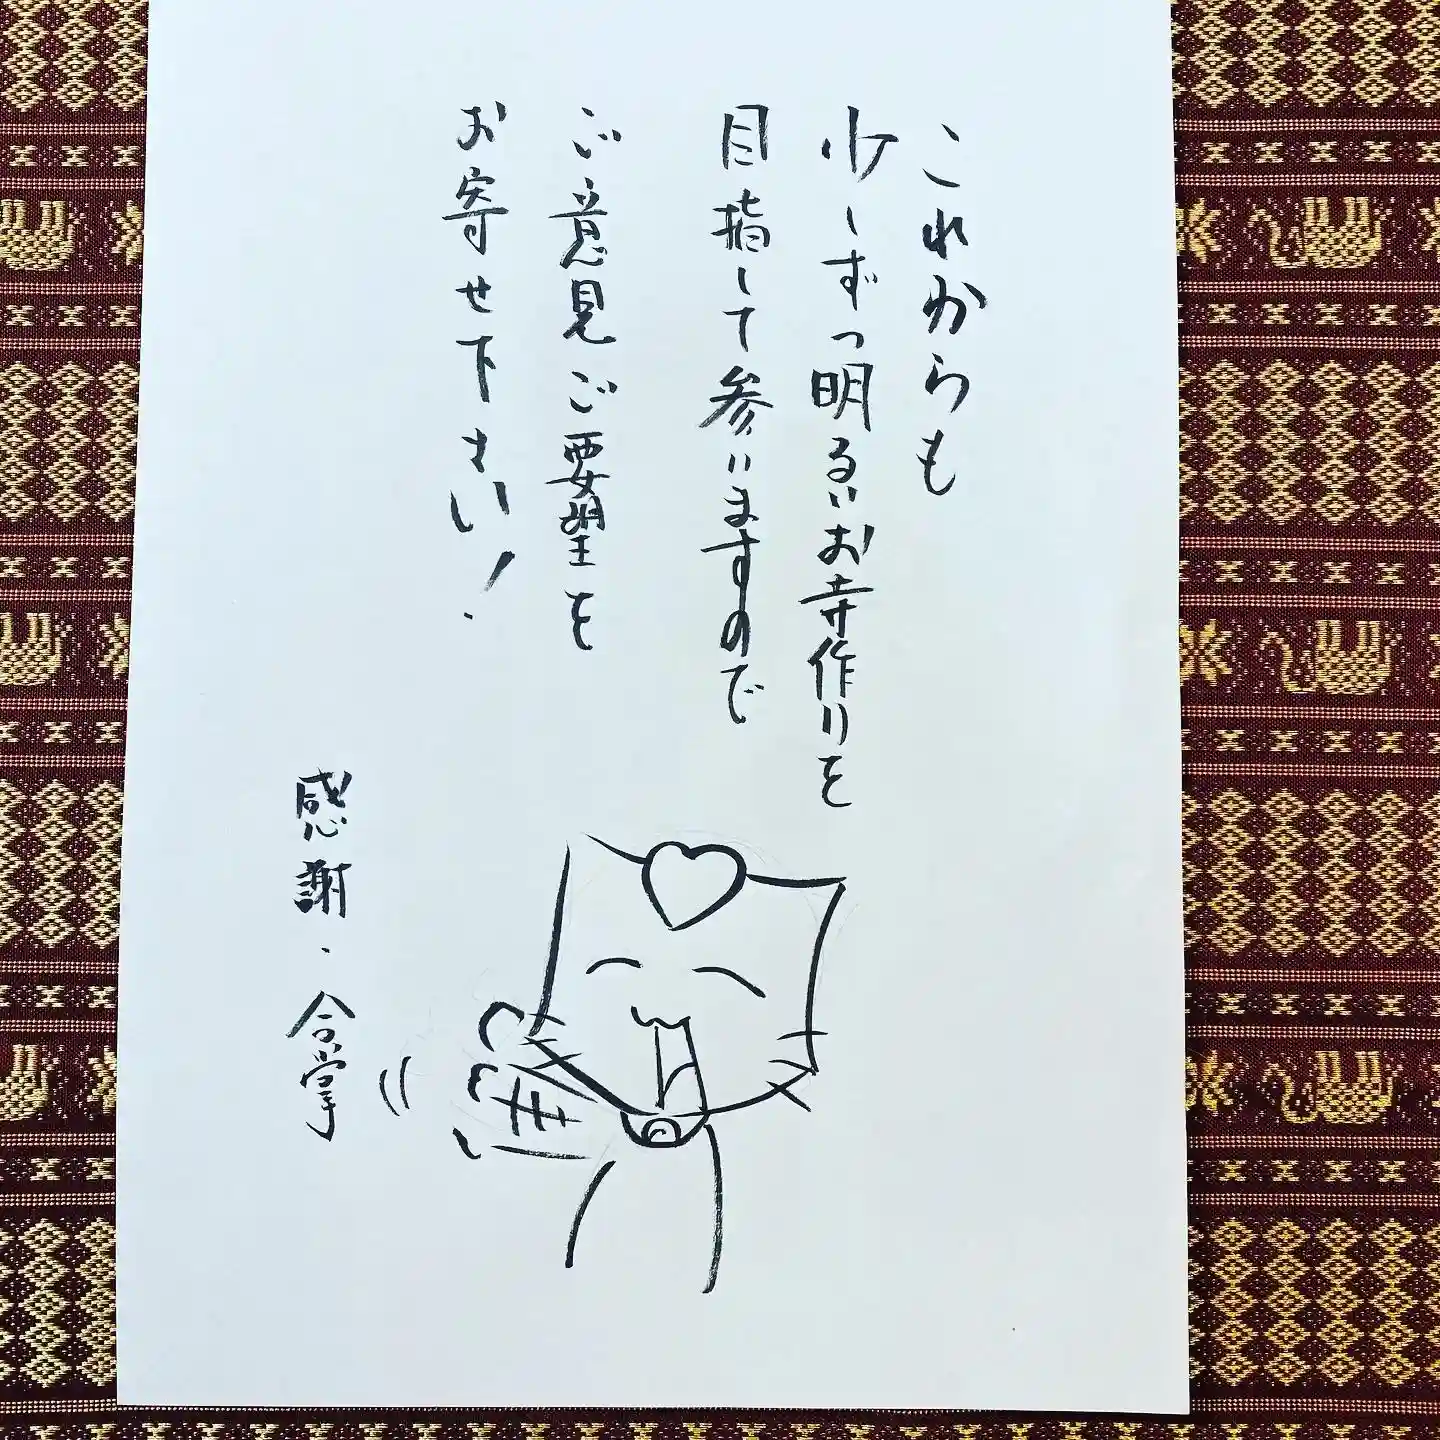 これからも
少しずつ明るいお寺作りを
目指して参いますので
ご意見ご要望を
お寄せ下さい!
感謝・合掌